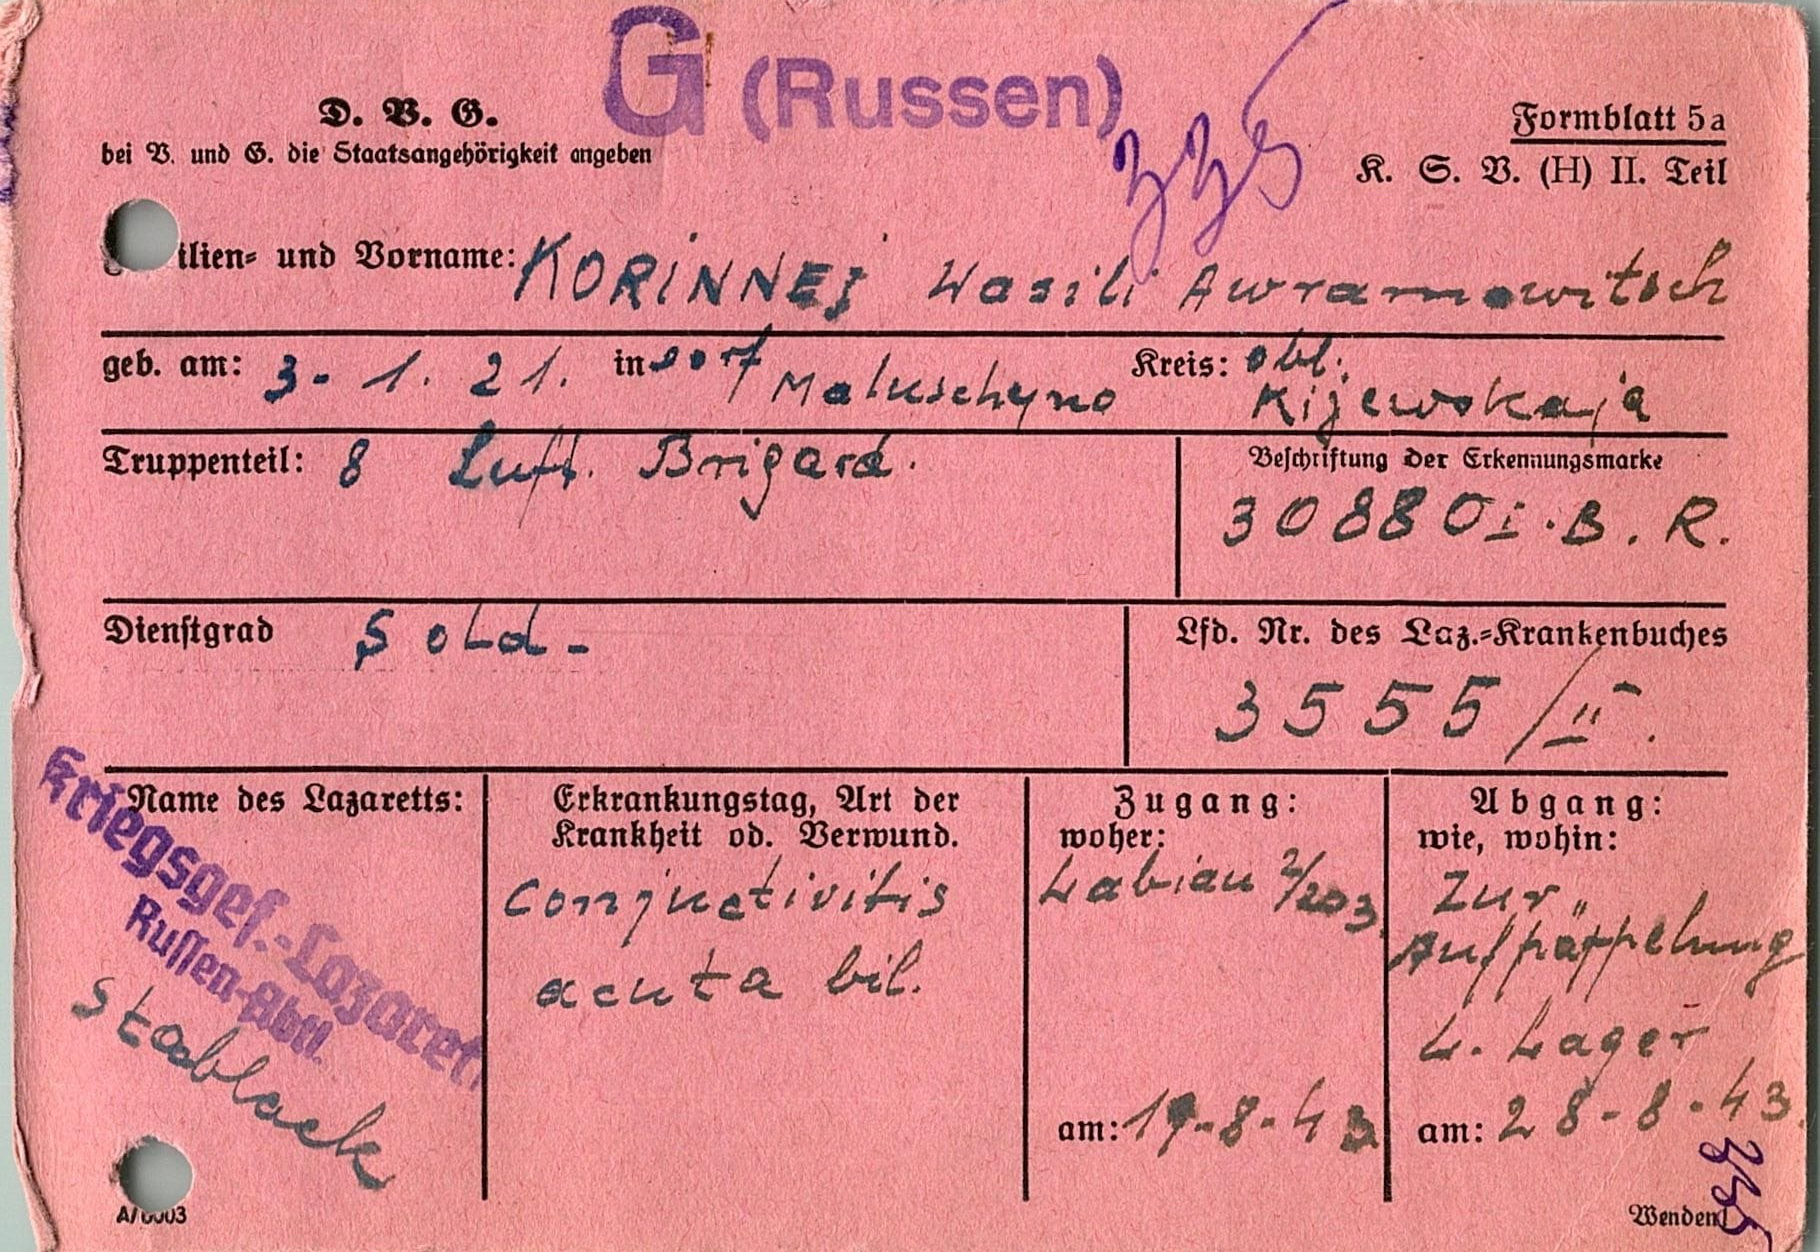 G (Russen)
D. V. G.
bei V. und G. die Staatsangehörigkeit angeben
Formblatt 5a
K. S. V. (H) II. Teil
ilien- und Vorname: KORINNEJ Wasili Awramowitsch
geb. am: 3-1.21. in Dorf Maluschyno Kreis: obl. Kijewskaja
Truppenteil: 8 Luft. Brigard.
Beschriftung der Erkennungsmarke
30880 I.B.R.
Dienstgrad Sold-
Lfd. Nr. des Laz.-Krankenbuches
3555/II.
Name des Lazaretts:
Kriegsgef.-Lazarett
Russen-Abtl.
Stablack
Erkrankungstag, Art der
Krankheit od. Verwund.
Conjuctivitis
acuta bil.
Zugang:
woher:
Labiau 2/203
am: 19-8-43
Abgang:
wie, wohin:
Zur
Aufpäppelung
L. Lager
am: 28-8-43.
Wenden!